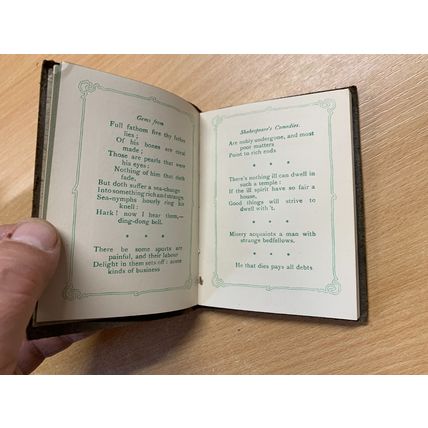 Gems from
Full fathom five thy father
lies;
Of his bones are coral
made;
Those are pearls that were
his eyes:
Nothing of him that doth
fade,
But doth suffer a sea-change
Into something rich and strange.
Sea-nymphs hourly ring his
knell:
Hark! now I hear them,—
ding-dong bell.
* * *
There be some sports are
painful, and their labour
Delight in them sets off: some
kinds of business
Shakespeare's Comedies.
Are nobly undergone, and most
poor matters
Point to rich ends
* * *
There's nothing ill can dwell in
such a temple:
If the ill spirit have so fair a
house,
Good things will strive to
dwell with 't.
* * *
Misery acquaints a man with
strange bedfellows.
* * *
He that dies pays all debts